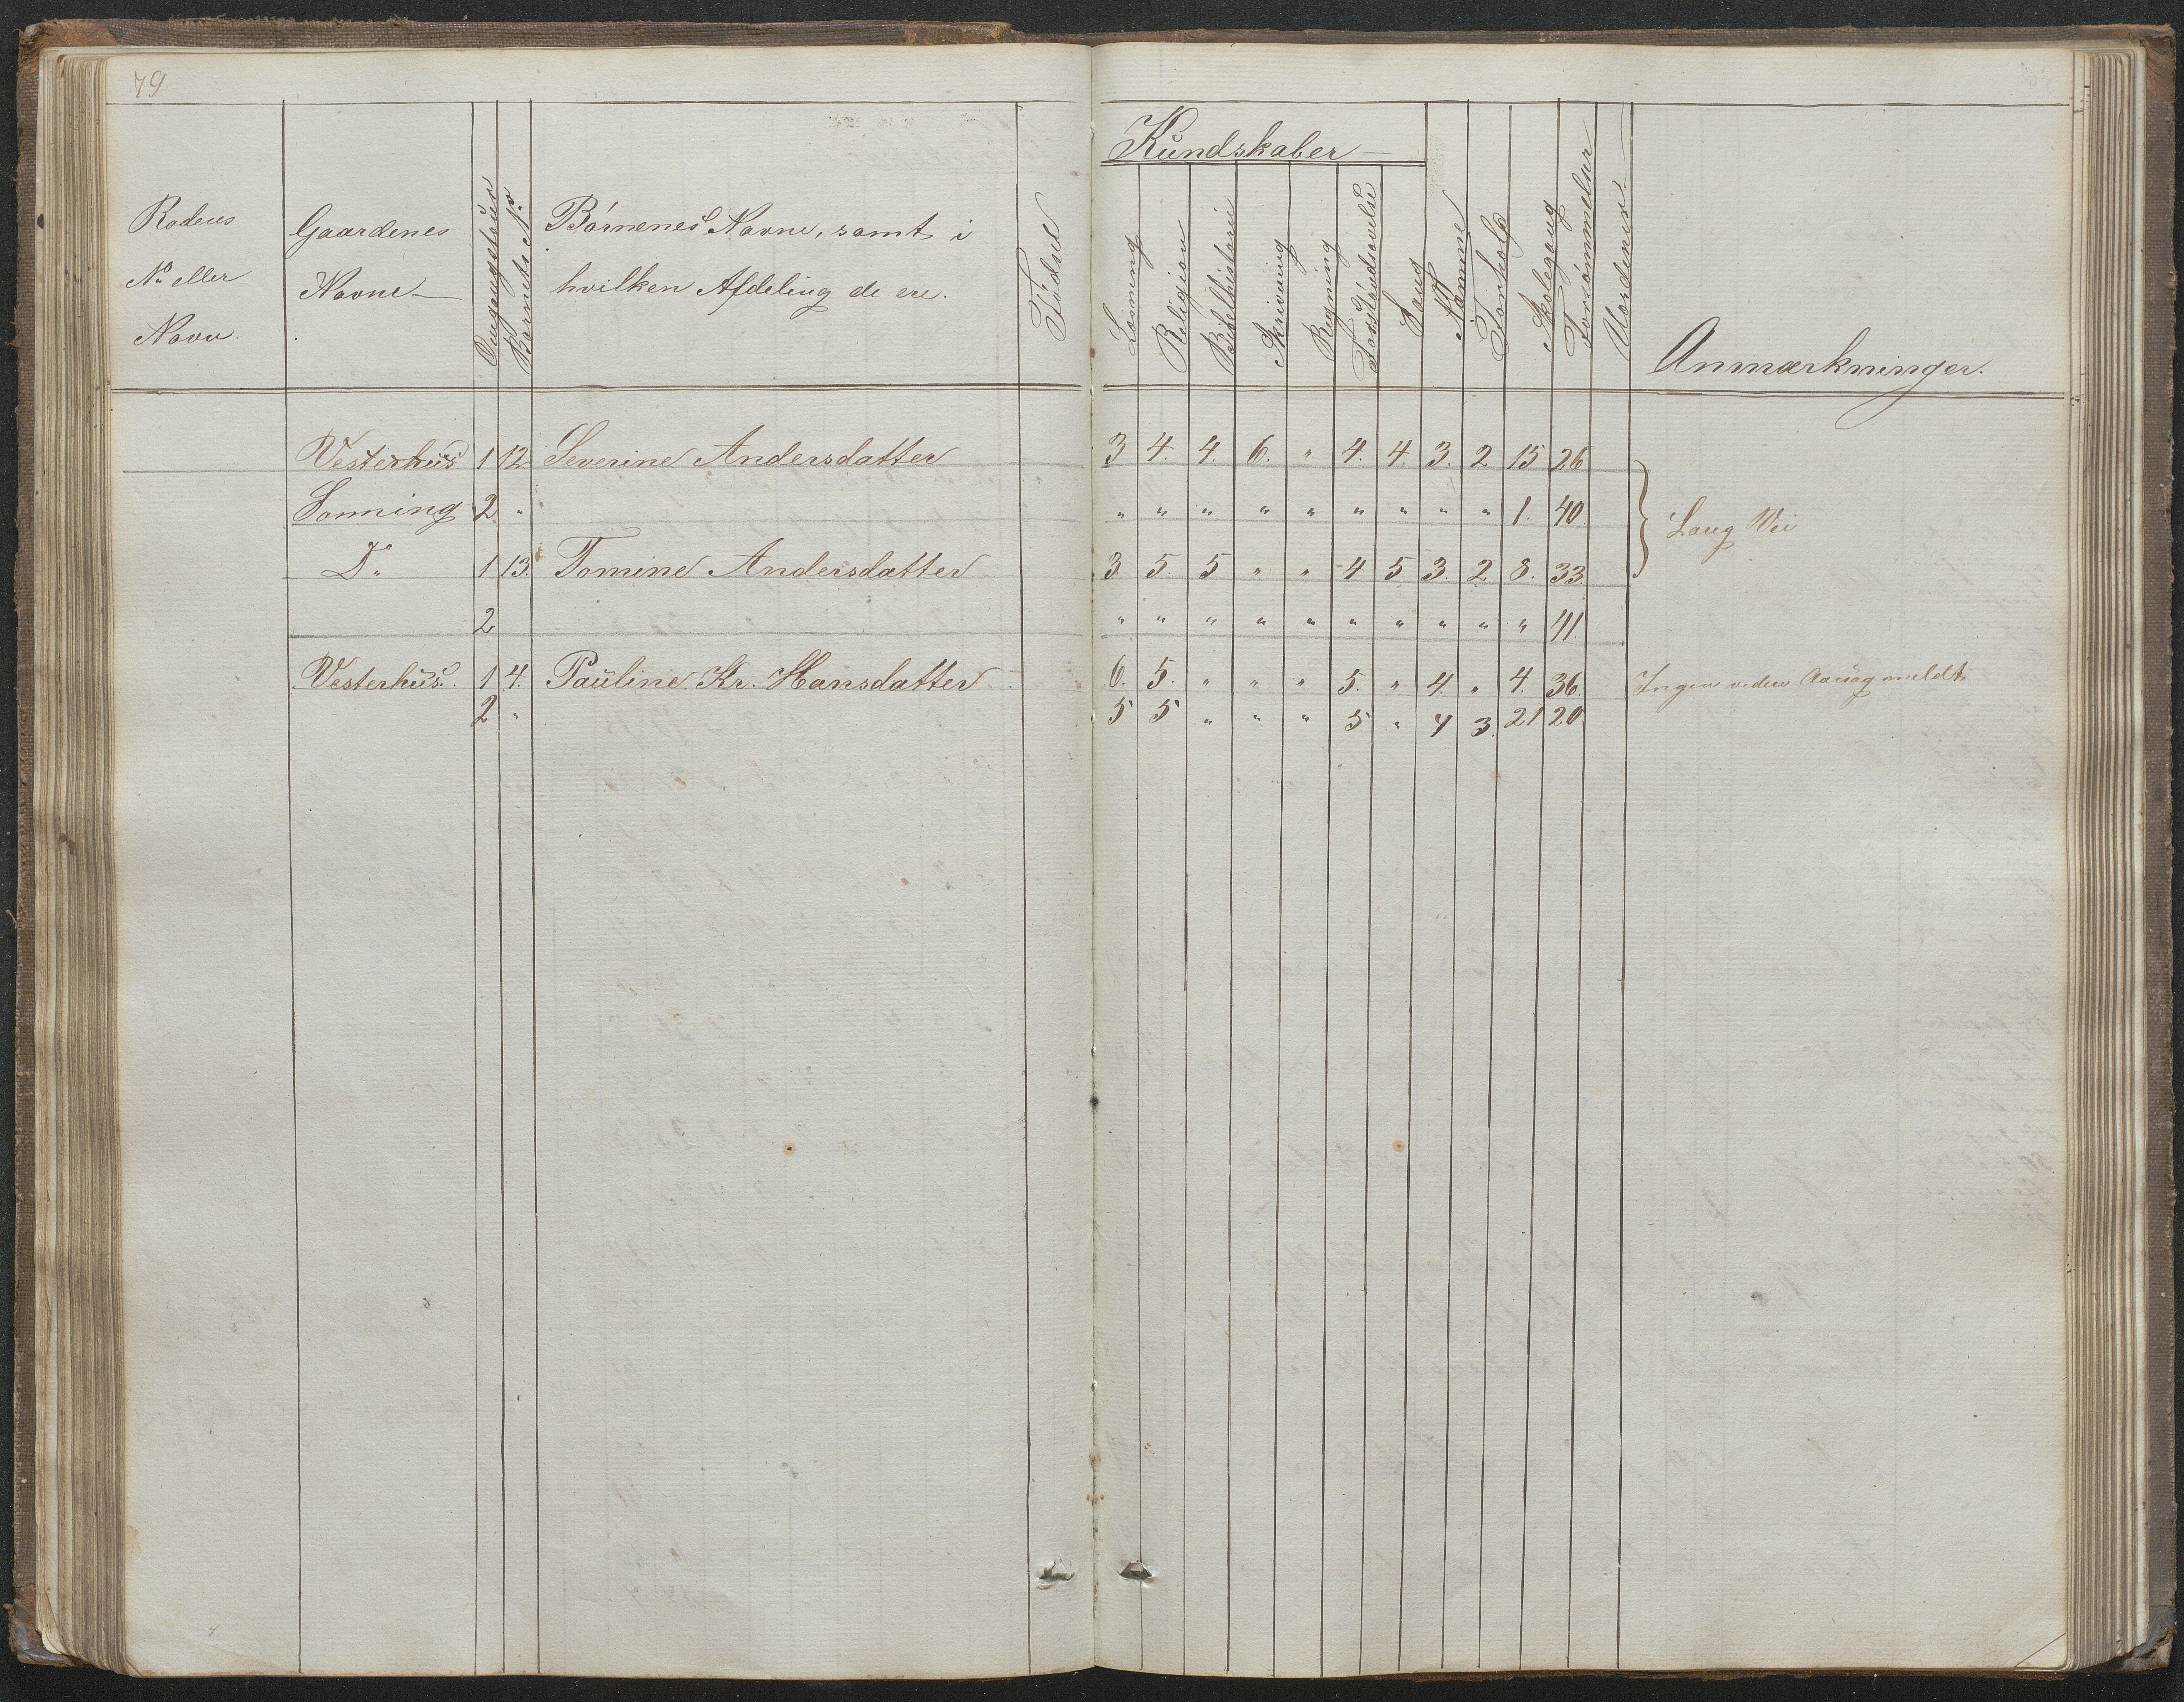 79
Rodens
No eller
Navn.
Gaardenes
Navne
Omgangstour
Barnets No.
Børnenes Navne, samt i
hvilken Afdeling de ere.
Fødsel
Kundskaber
Læsning
Religion
Bibelhistorie
Skrivning
Regning
Forstandsøvelse
Sang
Nemme
Forhold
Skolegang
Forsømmelser
Uordener
Anmærkninger.
Vesterhus 1 12 Severine Andersdatter 3 4. 4. 6. " 4. 4. 3. 2 15 26
Sønning 2 " " " " " " " " " " 1. 40.
Do 1 13. Tomine Andersdatter 3. 5. 5 " " 4 5 3. 2 8. 33.
Lang Vei
2 " " " " " " " " " " 41.
Vesterhus. 1 4. Pauline Kr. Hansdatter 6. 5. " " " 5. " 4. " 4. 36. Ingen videre Aarsag meldt
2 " 5 5 " " " 5 " 4 3. 21 20.